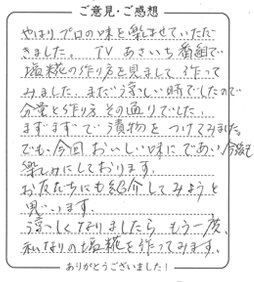 ご意見・ご感想
やはりプロの味を楽ませていただ
きました。 TV あさいち番組で
塩糀の作り方を見まして 作って
みました。まだうすい時でしたので
分量と作り方 その通りでした
ますますで 漬物を つけてみました。
でも、今回 おいしい味に であい 今後も
楽しみにしております。
お友だちにも紹介してみようと
思います。
涼しくなりましたら もう一度、
私なりの塩糀を作ってみます。
ありがとうございました!